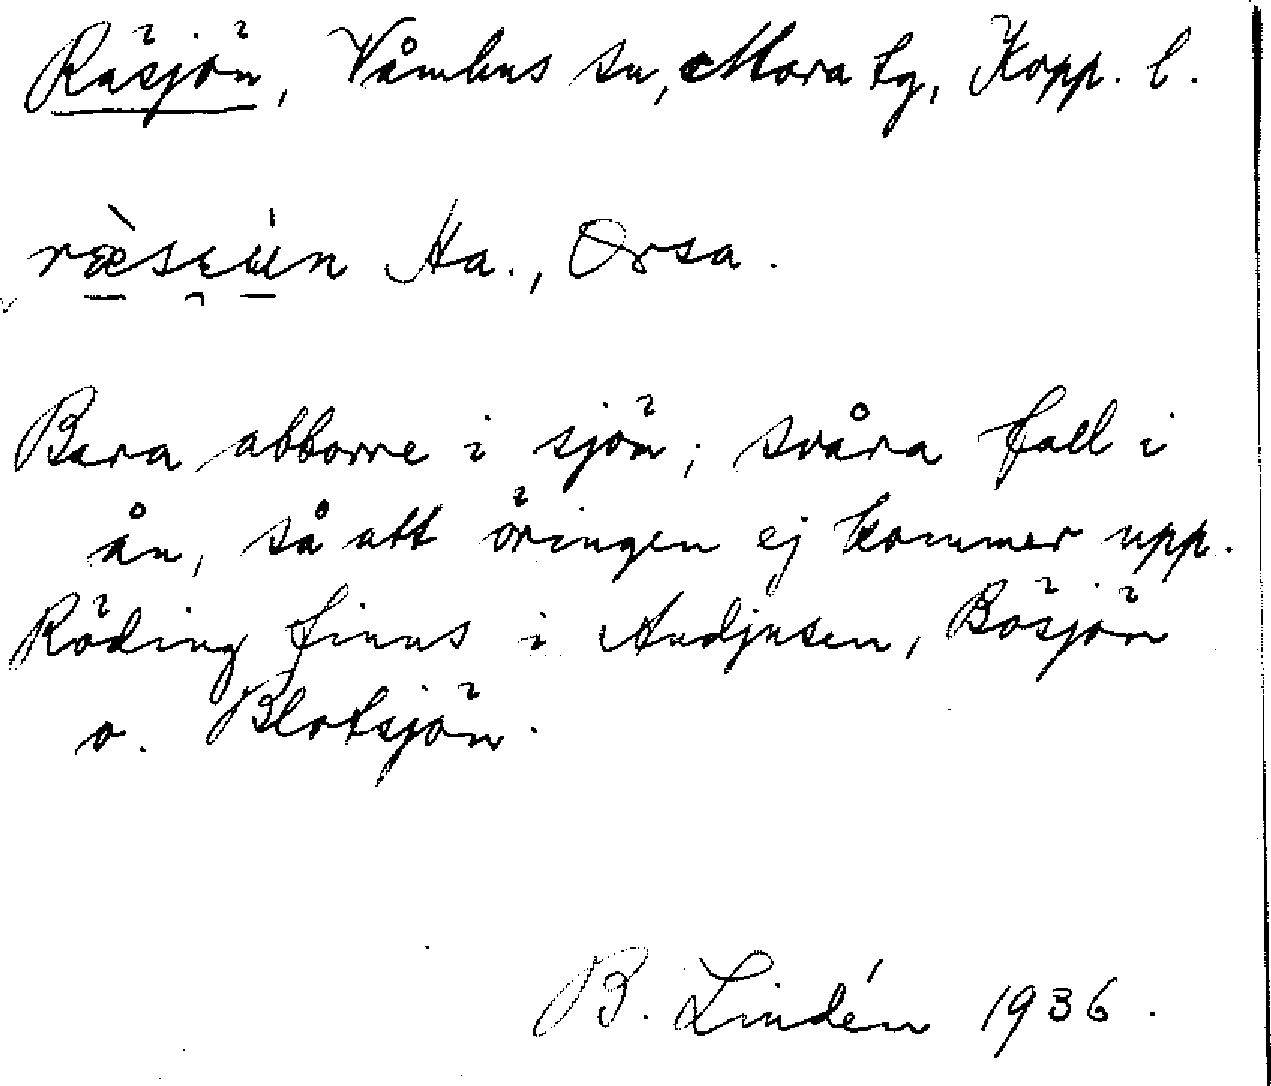 Räsjön, Våmhus sn, Mora tg, Kopp. l.
Ha., Orsa.
Bara abborre i sjön; svåra fall i
ån, så att öringen ej kommer upp.
Röding finns i Andjusen, Bösjön
o. Blotsjön.
B. Lindén 1936.